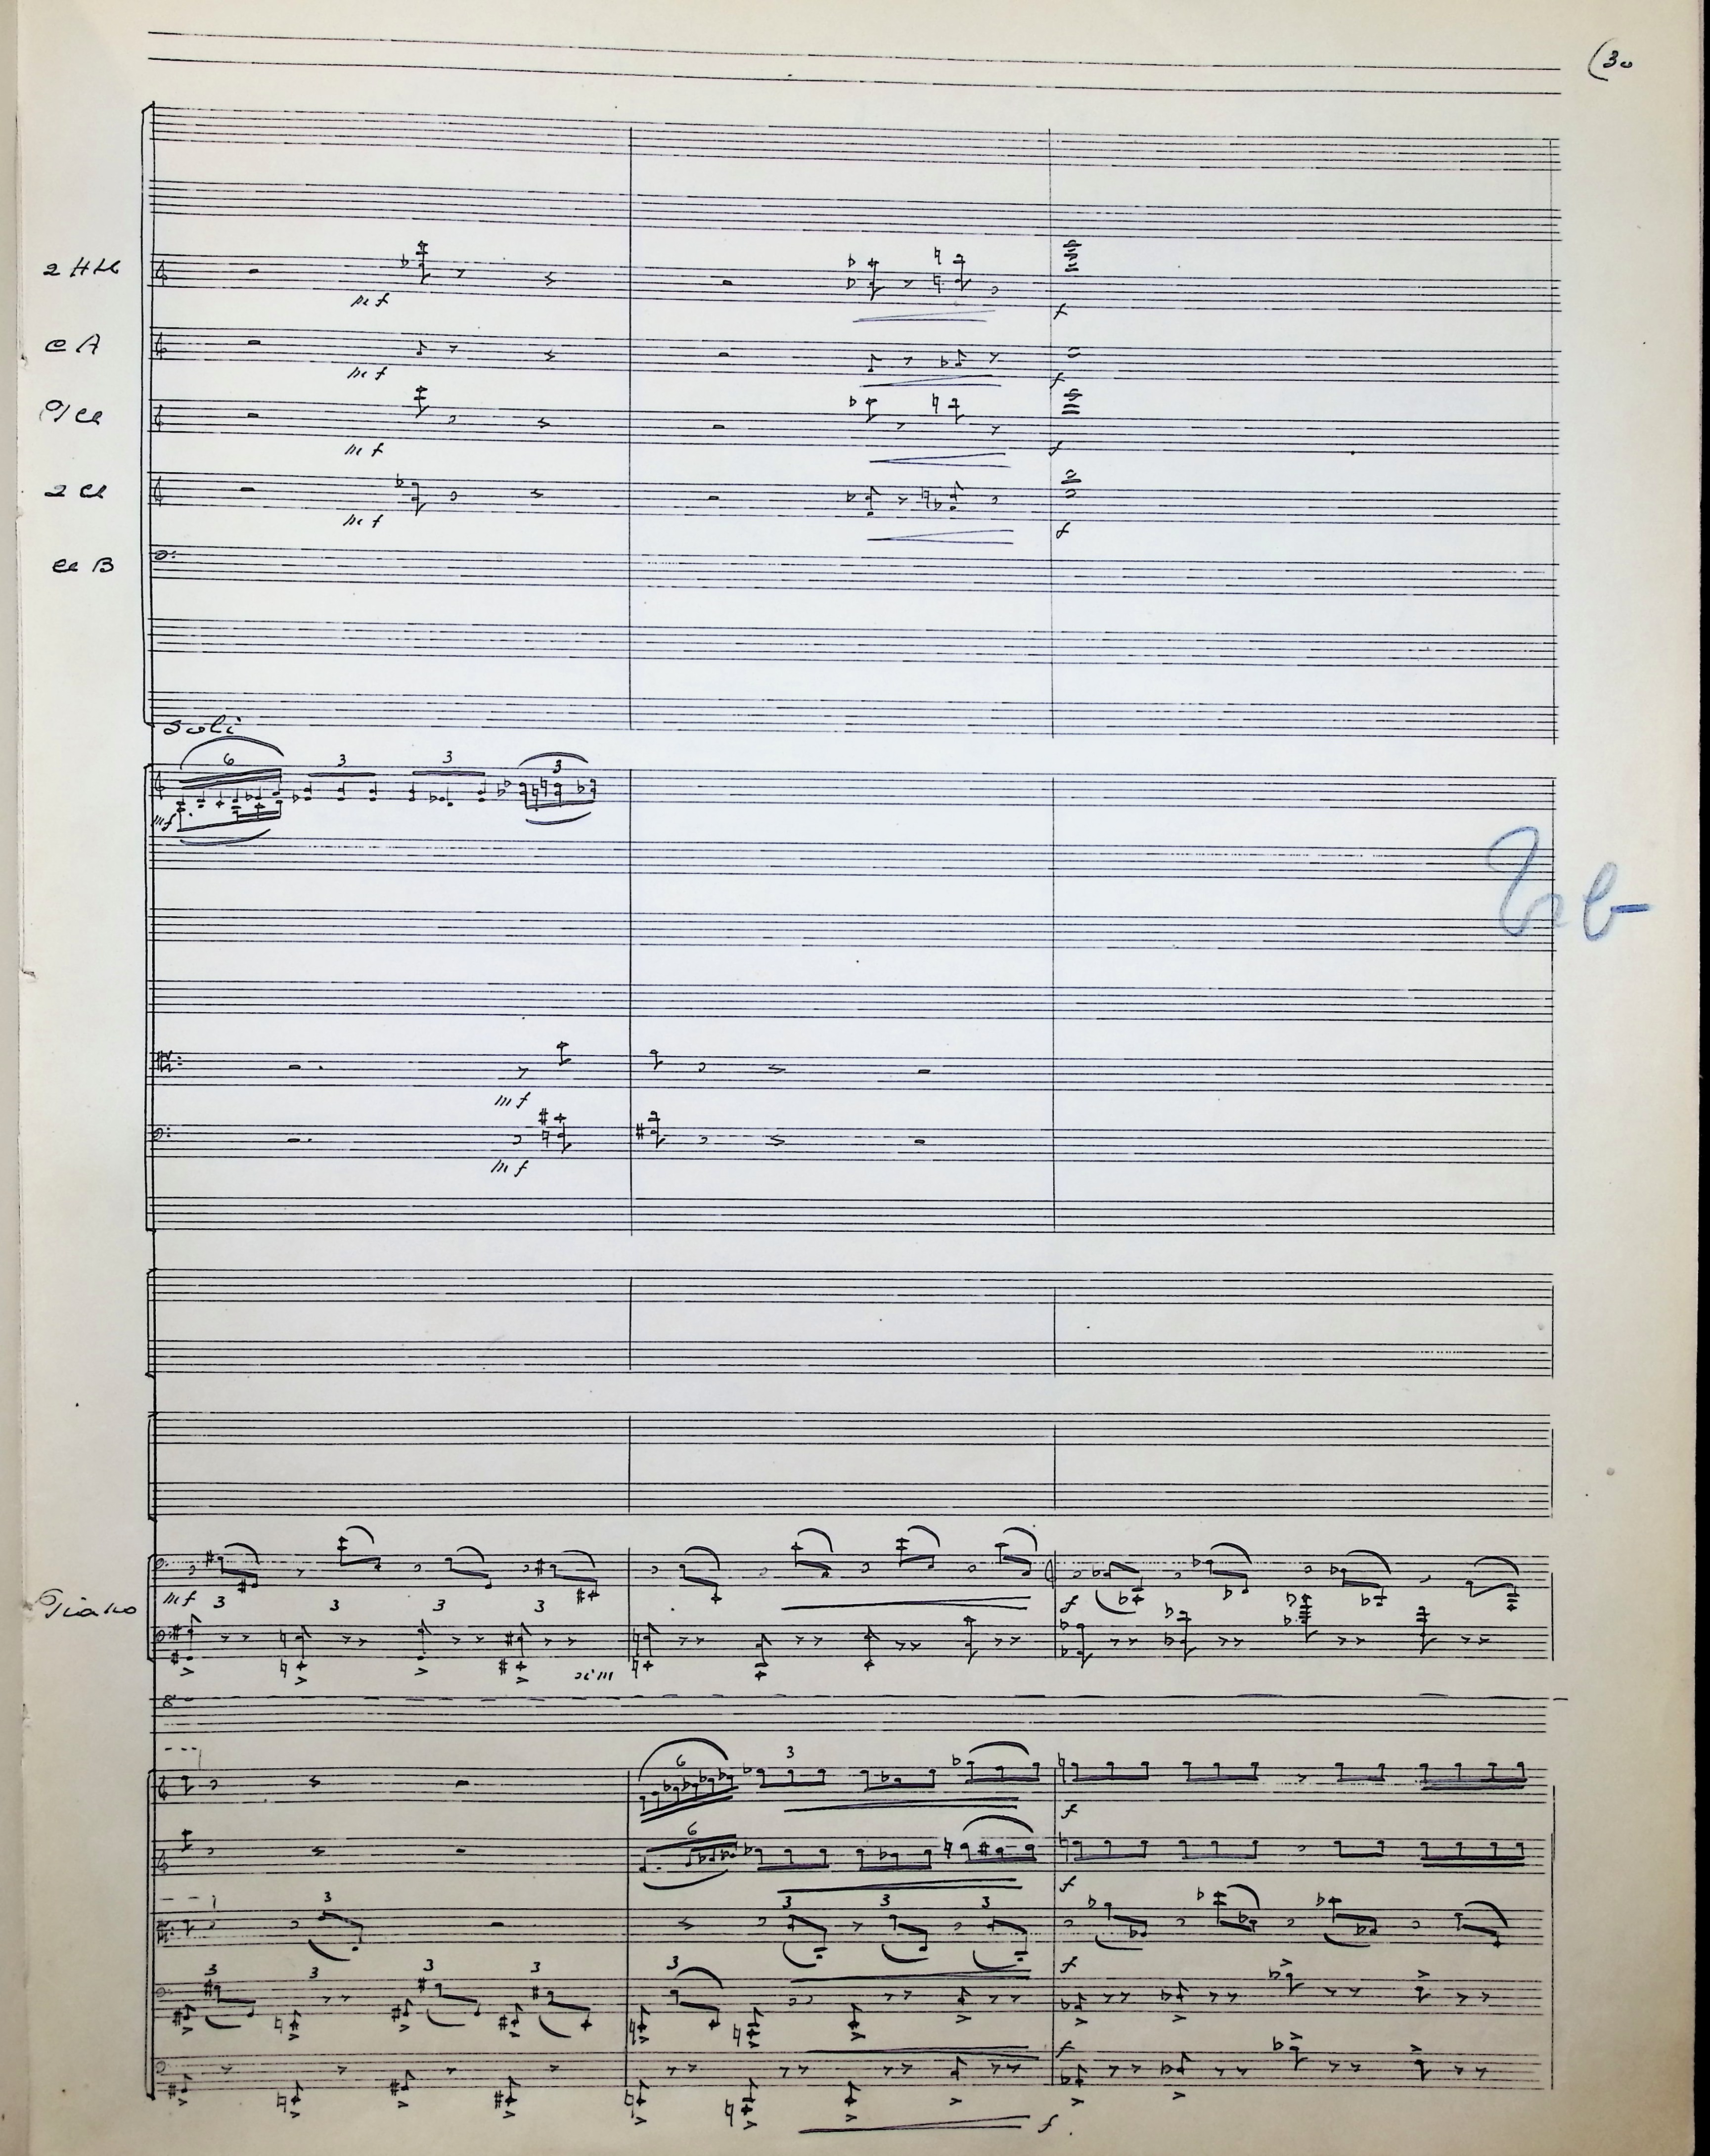 (30
2 Htb
mf
f
C A
mf
f
P Cl
mf
f
2 Cl
mf
f
Cl B
Soli
6 3 3 3
mf
mf
mf
Piano
mf 3 3 3 3
f
sim
8
6 3
f
6
f
3 3 3 3
f
3 3 3 3 3
f
f